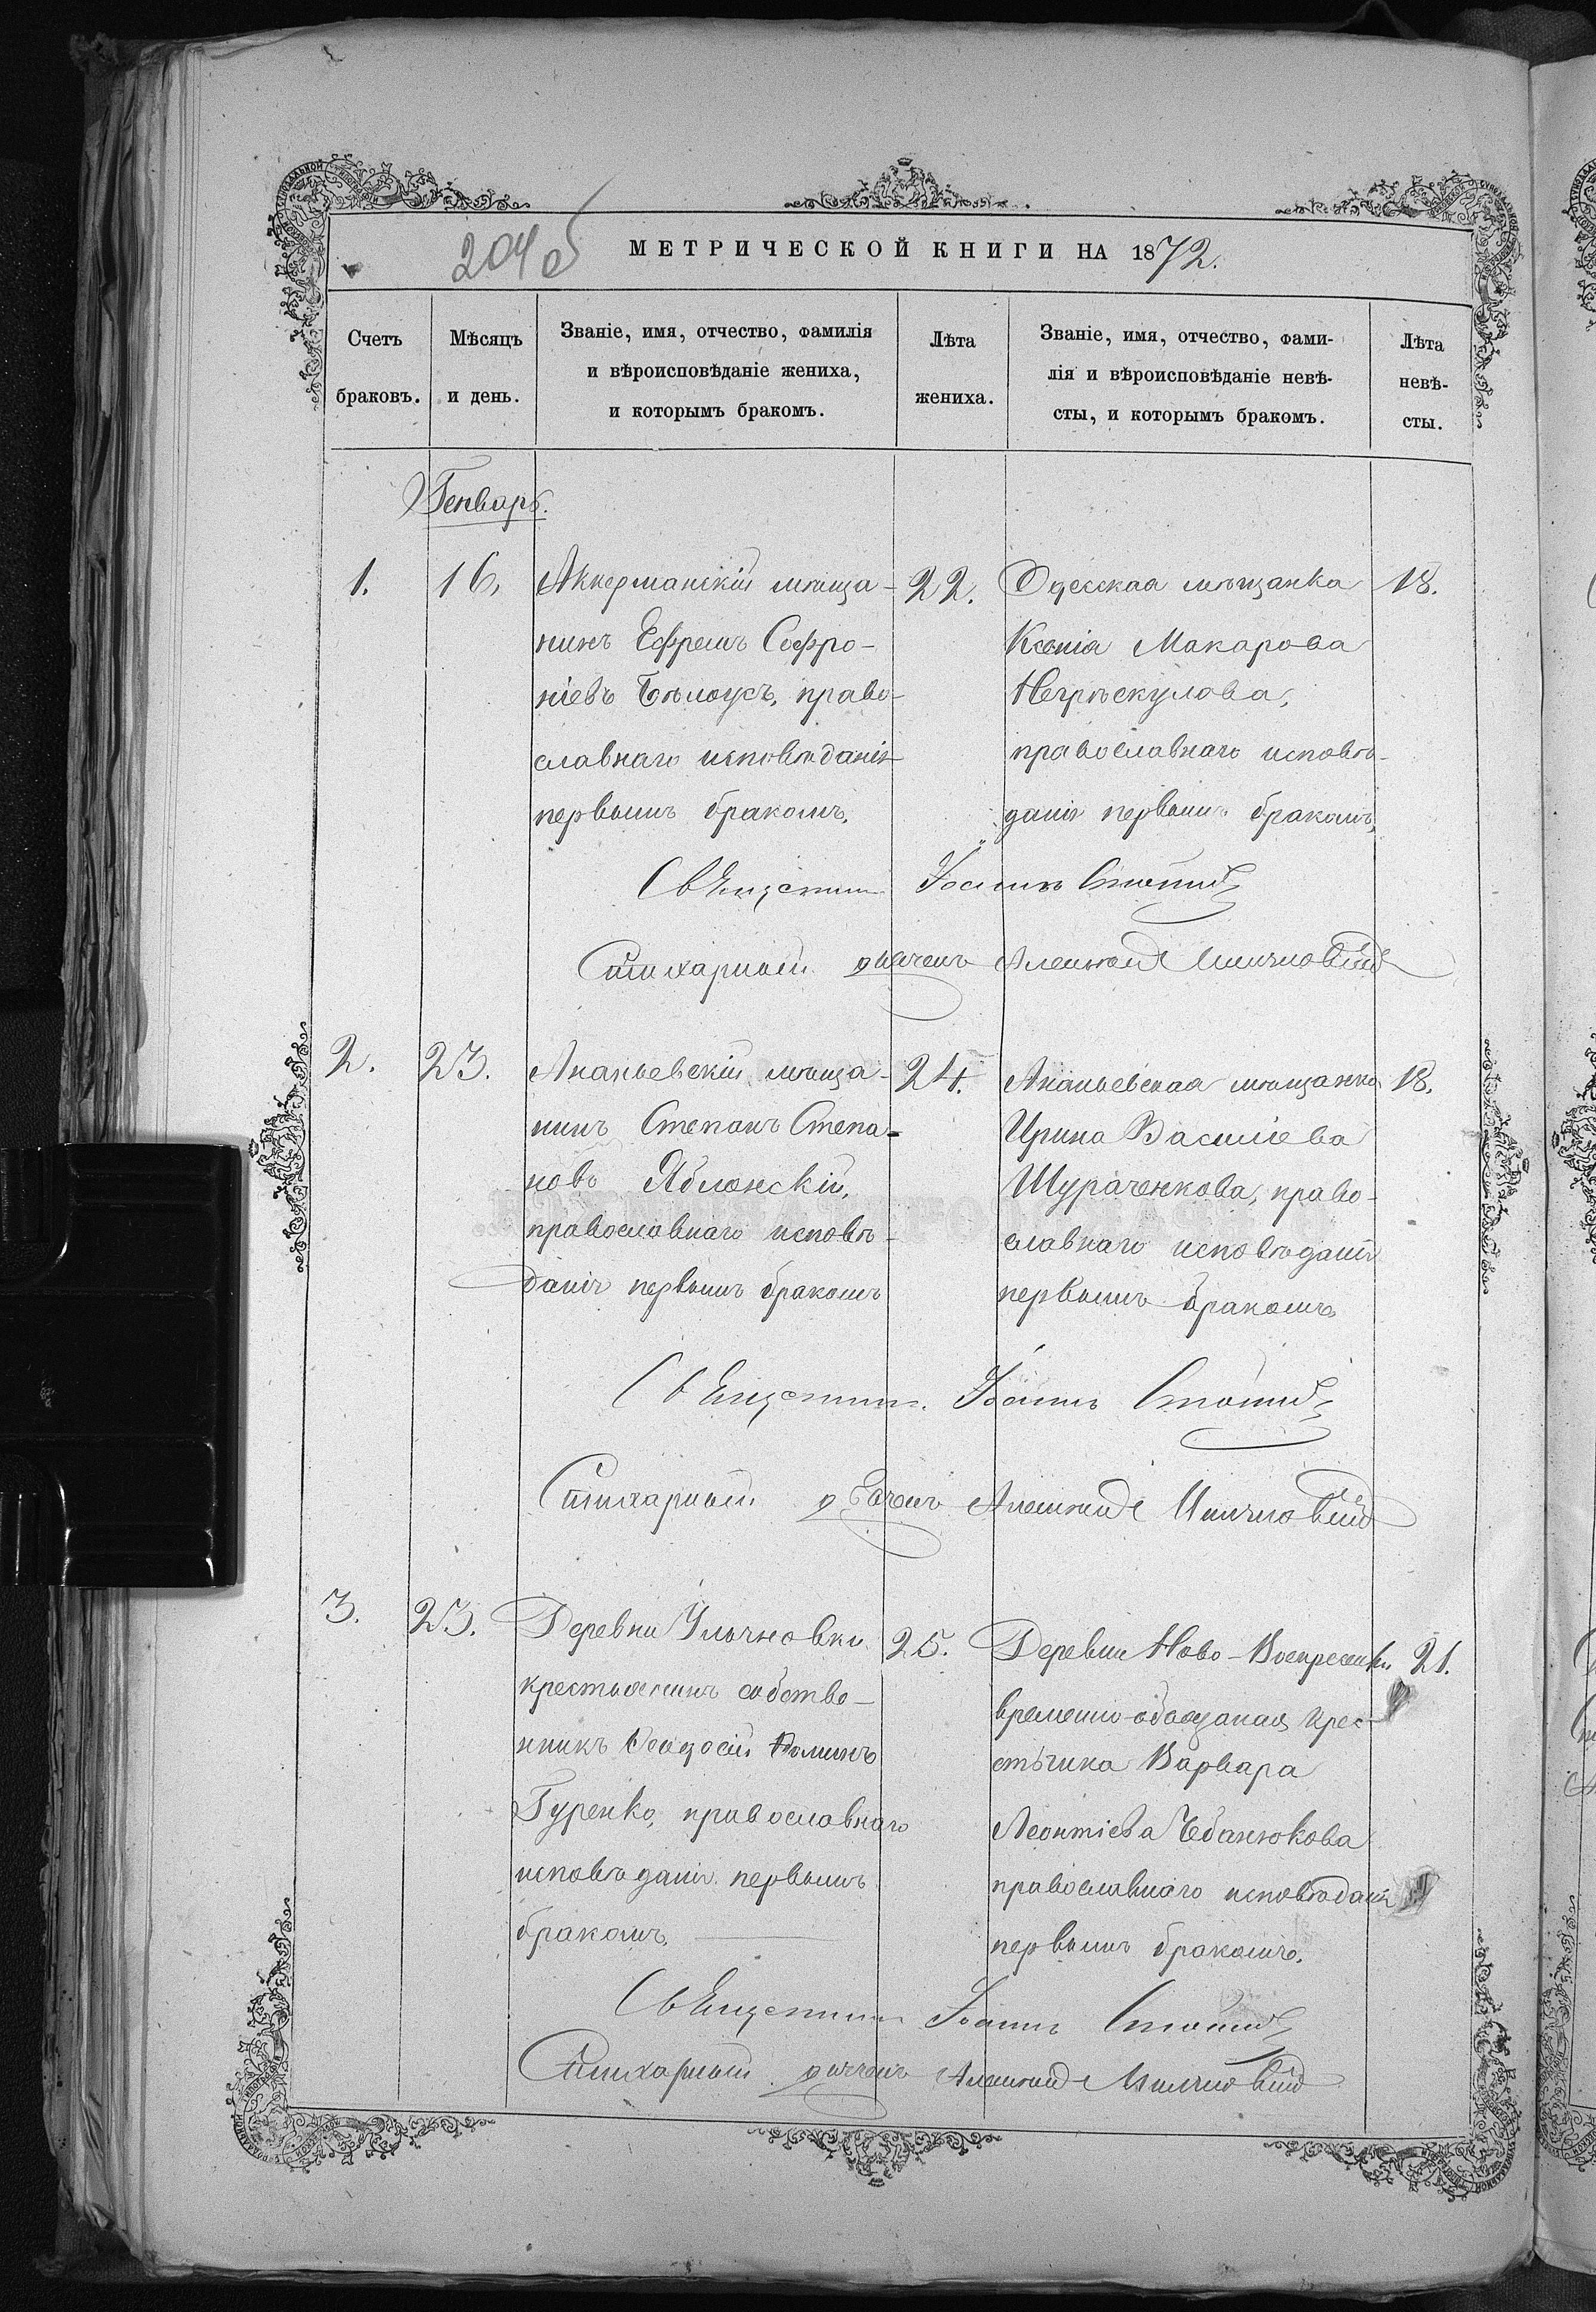 204 об
МЕТРИЧЕСКОЙ КНИГИ НА 1872.
Счетъ браковъ.
Мѣсяцъ и день.
Званіе, имя, отчество, фамилія
и вѣроисповѣданіе жениха,
и которымъ бракомъ.
Лѣта жениха.
Званіе, имя, отчество, фами-
лія и вѣроисповѣданіе невѣ-
сты, и которымъ бракомъ.
Лѣта невѣ-
сты.
Генварь.
1.
16.
Аккерманскій мѣща-
нинъ Ефремъ Софро-
ніевъ Бѣлоусъ, право-
славнаго исповѣданія
первымъ бракомъ.
22.
Одесская мѣщанка
Ксенія Макарова
Негрѣскулова,
православнаго исповѣ-
данія первымъ бракомъ,
18.
Священникъ Іоаннъ
Стихарный дьячекъ
2.
23.
Ананьевскій мѣща-
нинъ Степанъ Степа-
новъ Яблонскій,
православнаго исповѣ-
данія первымъ бракомъ
24.
Ананьевская мѣщанка
Ирина Василіева
Шураченкова, право-
славнаго исповѣданія
первымъ бракомъ
18.
Священникъ Іоаннъ
Стихарный дьячекъ
3.
23.
Деревни Ульяновки
крестьянинъ собстве-
нникъ Феодосій Фоминъ
Гуренко, православнаго
исповѣданія первымъ
бракомъ.
25.
Деревни Ново-Воскресенки
временно-обязаная крес-
тьянка Варвара
Леонтіева Чебанюкова
православнаго исповѣданія
первымъ бракомъ.
21.
Священникъ Іоаннъ
Стихарный дьячекъ